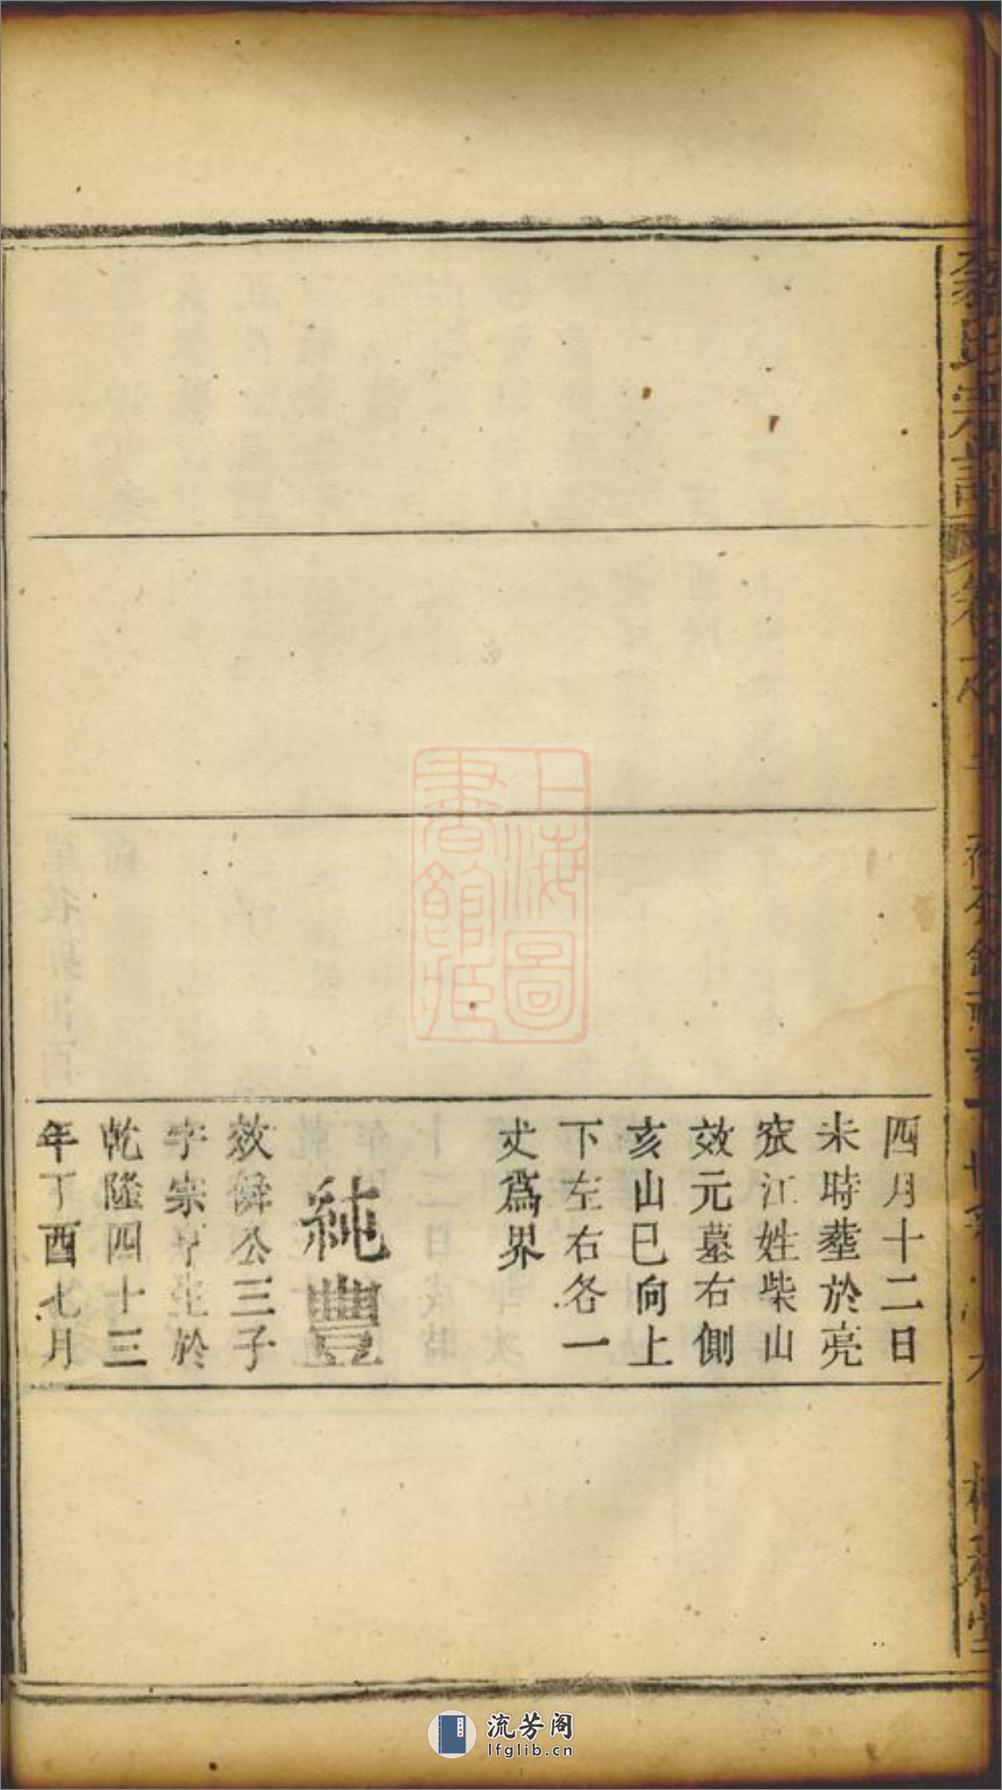 四月十二日
未時塟於亮
窊江姓柴山
效元墓右側
亥山巳向上
下左右各一
丈爲界
純豐
效僯公三子
字宗亨生於
乾隆四十三
年丁酉七月
上海圖
書館藏
流芳阁
lfglib.cn